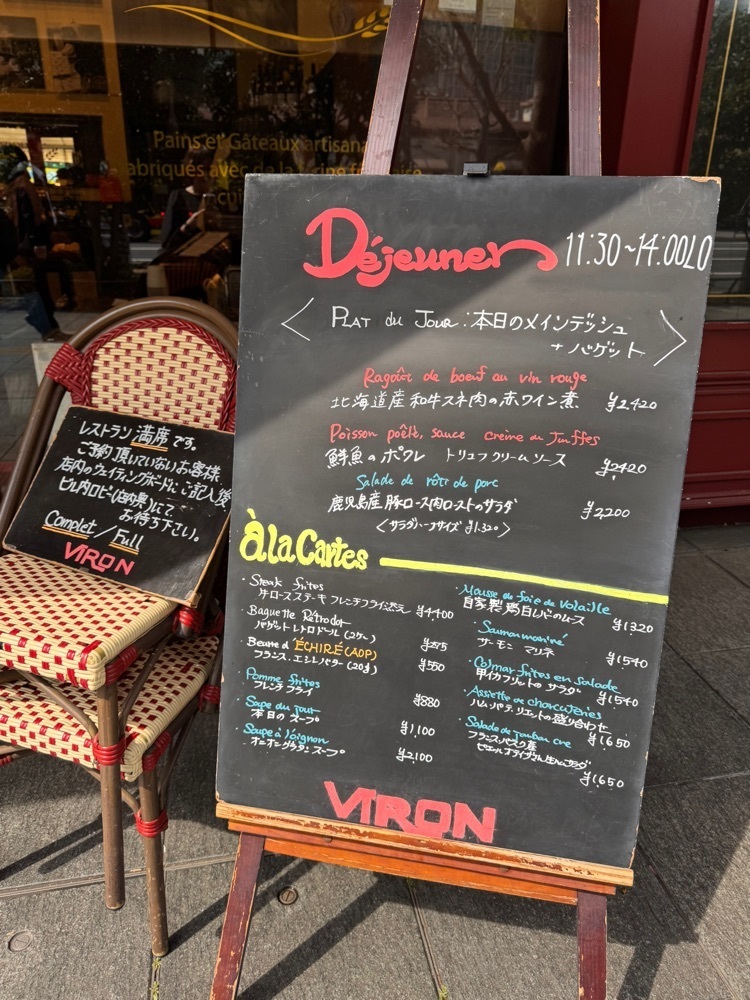 Pains et Gâteaux artisana
abriqués avec de la
Déjeuner 11:30~14:00LO
PLAT du JOUR:本日のメインディッシュ
+ バゲット
Ragoût de boeuf au vin rouge
北海道産和牛スネ肉の赤ワイン煮 ¥2,420
Poisson poêlé, sauce crème au Truffes
鮮魚のポワレ トリュフクリームソース ¥2420
Salade de rôti de porc
鹿児島産豚ロース肉ローストのサラダ ¥2,200
<サラダハーフサイズ ¥1,320>
à la Cartes
・Steak frites
牛ロースステーキ フレンチフライ添え ¥4,400
・Baguette Rétrodor
バゲットレトロドール(2ケ) ¥275
・Beurre d'ÉCHIRÉ(AOP)
フランス、エシレバター(20g) ¥550
・Pomme frites
フレンチフライ ¥880
・Supe du jour
本日のスープ ¥1,100
・Soupe à l'oignon
オニオングラタンスープ ¥2,100
・Mousse de foie de Volaille
自家製鶏白レバーのムース ¥1320
・Saumon mariné
サーモン マリネ ¥1540
・Colmar frites en salade
甲イカフリットのサラダ ¥1540
・Assiette de charcuteries
ハム、パテ、リエットの盛り合わせ ¥1650
・Salade de jambon cru
フランス、バスク産
¥1650
VIRON
レストラン満席です。
ご予約頂いていないお客様
店内のウェイティングボードにご記入後
ビル内ロビー(店外奥)にて
お待ち下さい。
Complet / Full
VIRON